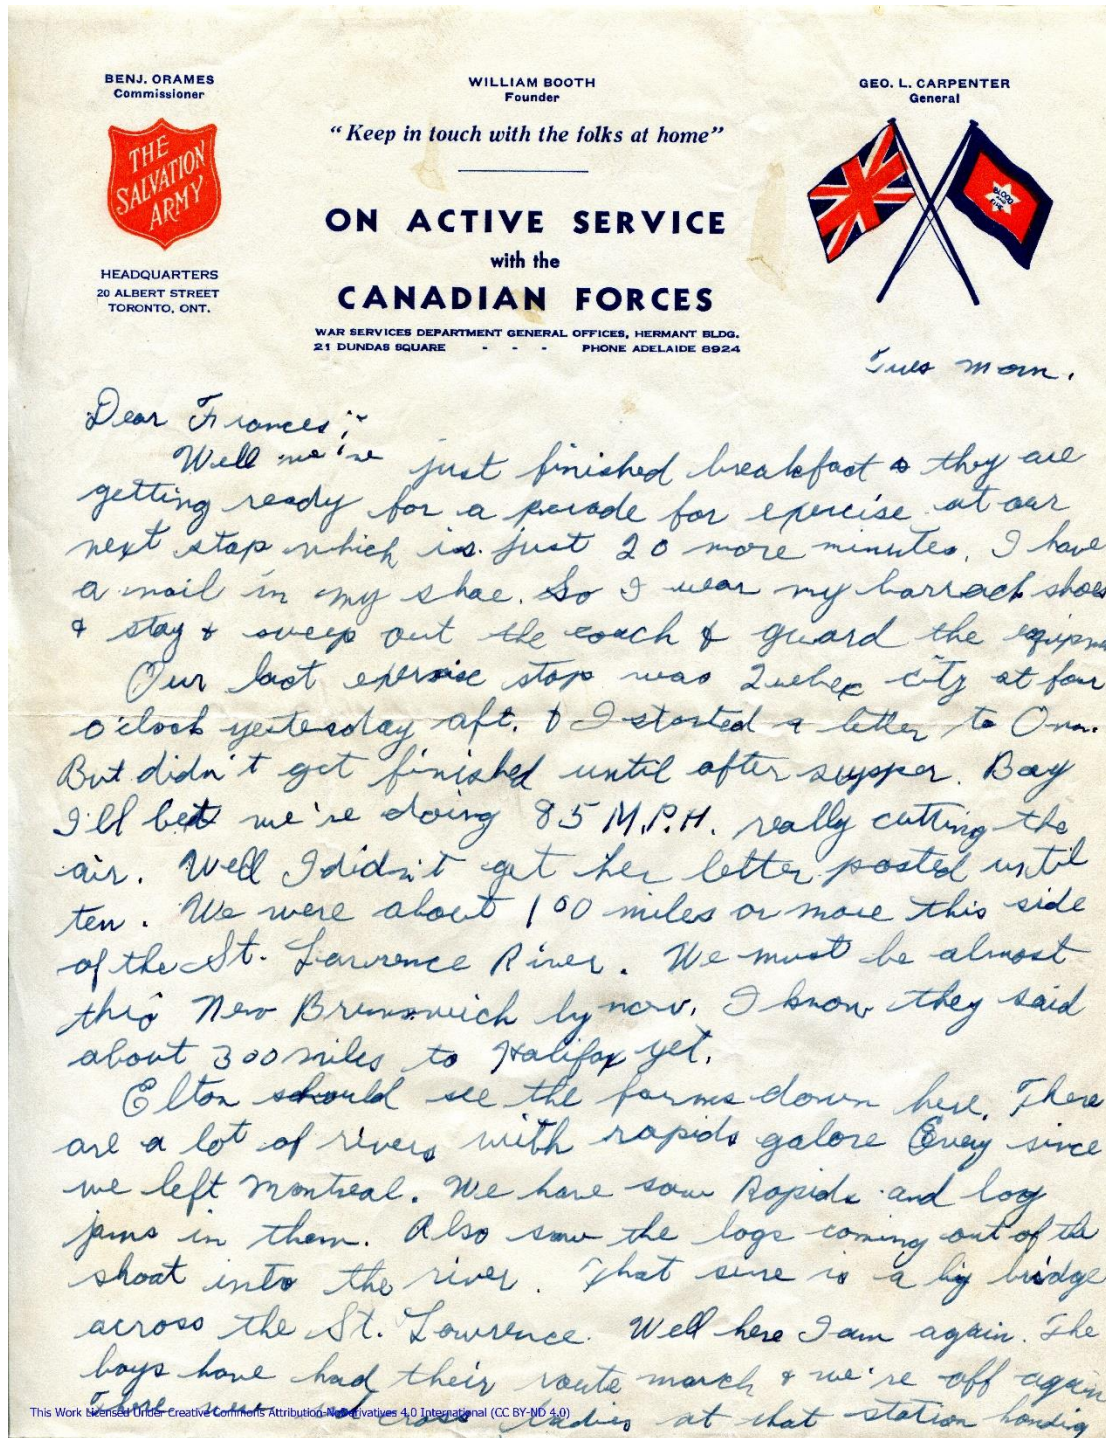 BENJ. ORAMES
Commissioner
WILLIAM BOOTH
Founder
GEO. L. CARPENTER
General
"Keep in touch with the folks at home"
THE
SALVATION
ARMY
BLOOD
AND
FIRE
ON ACTIVE SERVICE
with the
CANADIAN FORCES
HEADQUARTERS
20 ALBERT STREET
TORONTO, ONT.
WAR SERVICES DEPARTMENT GENERAL OFFICES, HERMANT BLDG.
21 DUNDAS SQUARE - - - PHONE ADELAIDE 8924
Tues morn.
Dear Frances;-
Well we've just finished breakfast & they are
getting ready for a parade for exercise at our
next stop which is just 20 more minutes. I have
a nail in my shoe. So I wear my barrack shoes
& stay & sweep out the coach & guard the
Our last exercise stop was Quebec city at four
o'clock yesterday aft. & I started a letter to
But didn't get finished until after supper. Boy
I'll bet we're doing 85 M.P.H. really cutting the
air. Well I didn't get her letter posted until
ten. We were about 100 miles or more this side
of the St. Lawrence River. We must be almost
thro New Brunswick by now. I know they said
about 300 miles to Halifax yet.
Elton should see the farms down here. There
are a lot of rivers with rapids galore Every since
we left Montreal. We have saw Rapids and log
jams in them. Also saw the logs coming out of the
shoat into the river. That sure is a big bridge
across the St. Lawrence. Well here I am again. The
boys have had their route march & we're off again
There were cross ladies at that station handing
This Work Licensed Under Creative Commons Attribution-NoDerivatives 4.0 International (CC BY-ND 4.0)